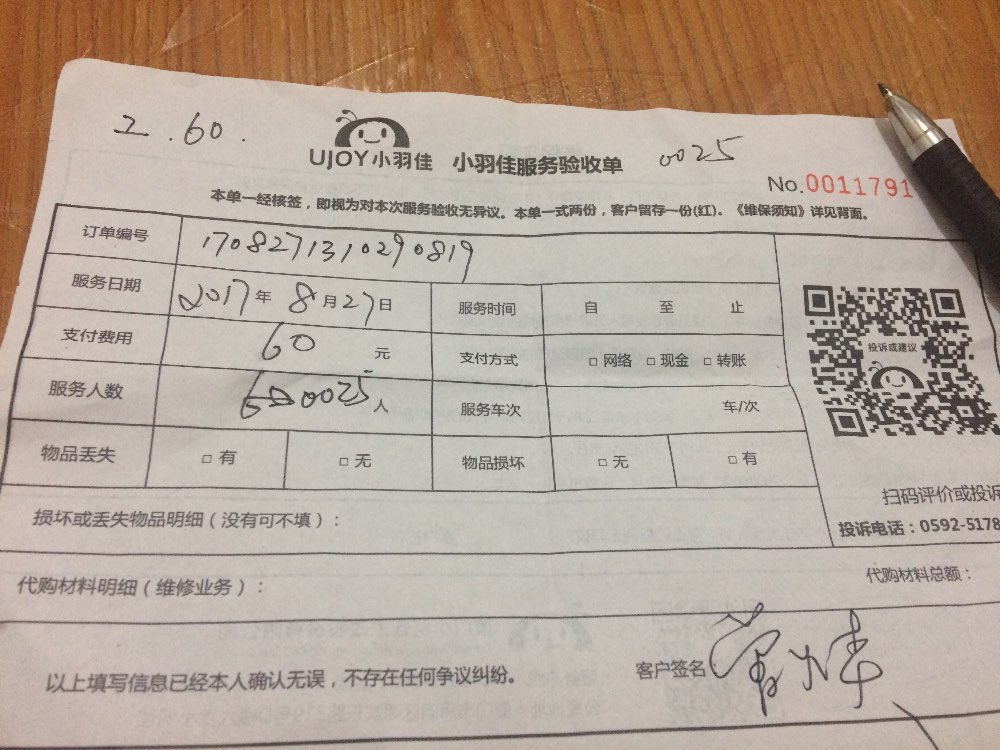 2.60. UJOY小羽佳 小羽佳服务验收单 0025
No.0011791
本单一经核签，即视为对本次服务验收无异议。本单一式两份，客户留存一份(红)。《维保须知》详见背面。
订单编号 1708271310290819
服务日期 2017年 8月27日 服务时间 自 至 止
支付费用 60 元 支付方式 □ 网络 □ 现金 □ 转账
投诉或建议
服务人数 0025 人 服务车次 车/次
物品丢失 □ 有 □ 无 物品损坏 □ 无 □ 有
扫码评价或投诉
损坏或丢失物品明细（没有可不填）：
投诉电话：0592-5178
代购材料明细（维修业务）： 代购材料总额：
以上填写信息已经本人确认无误，不存在任何争议纠纷。 客户签名：